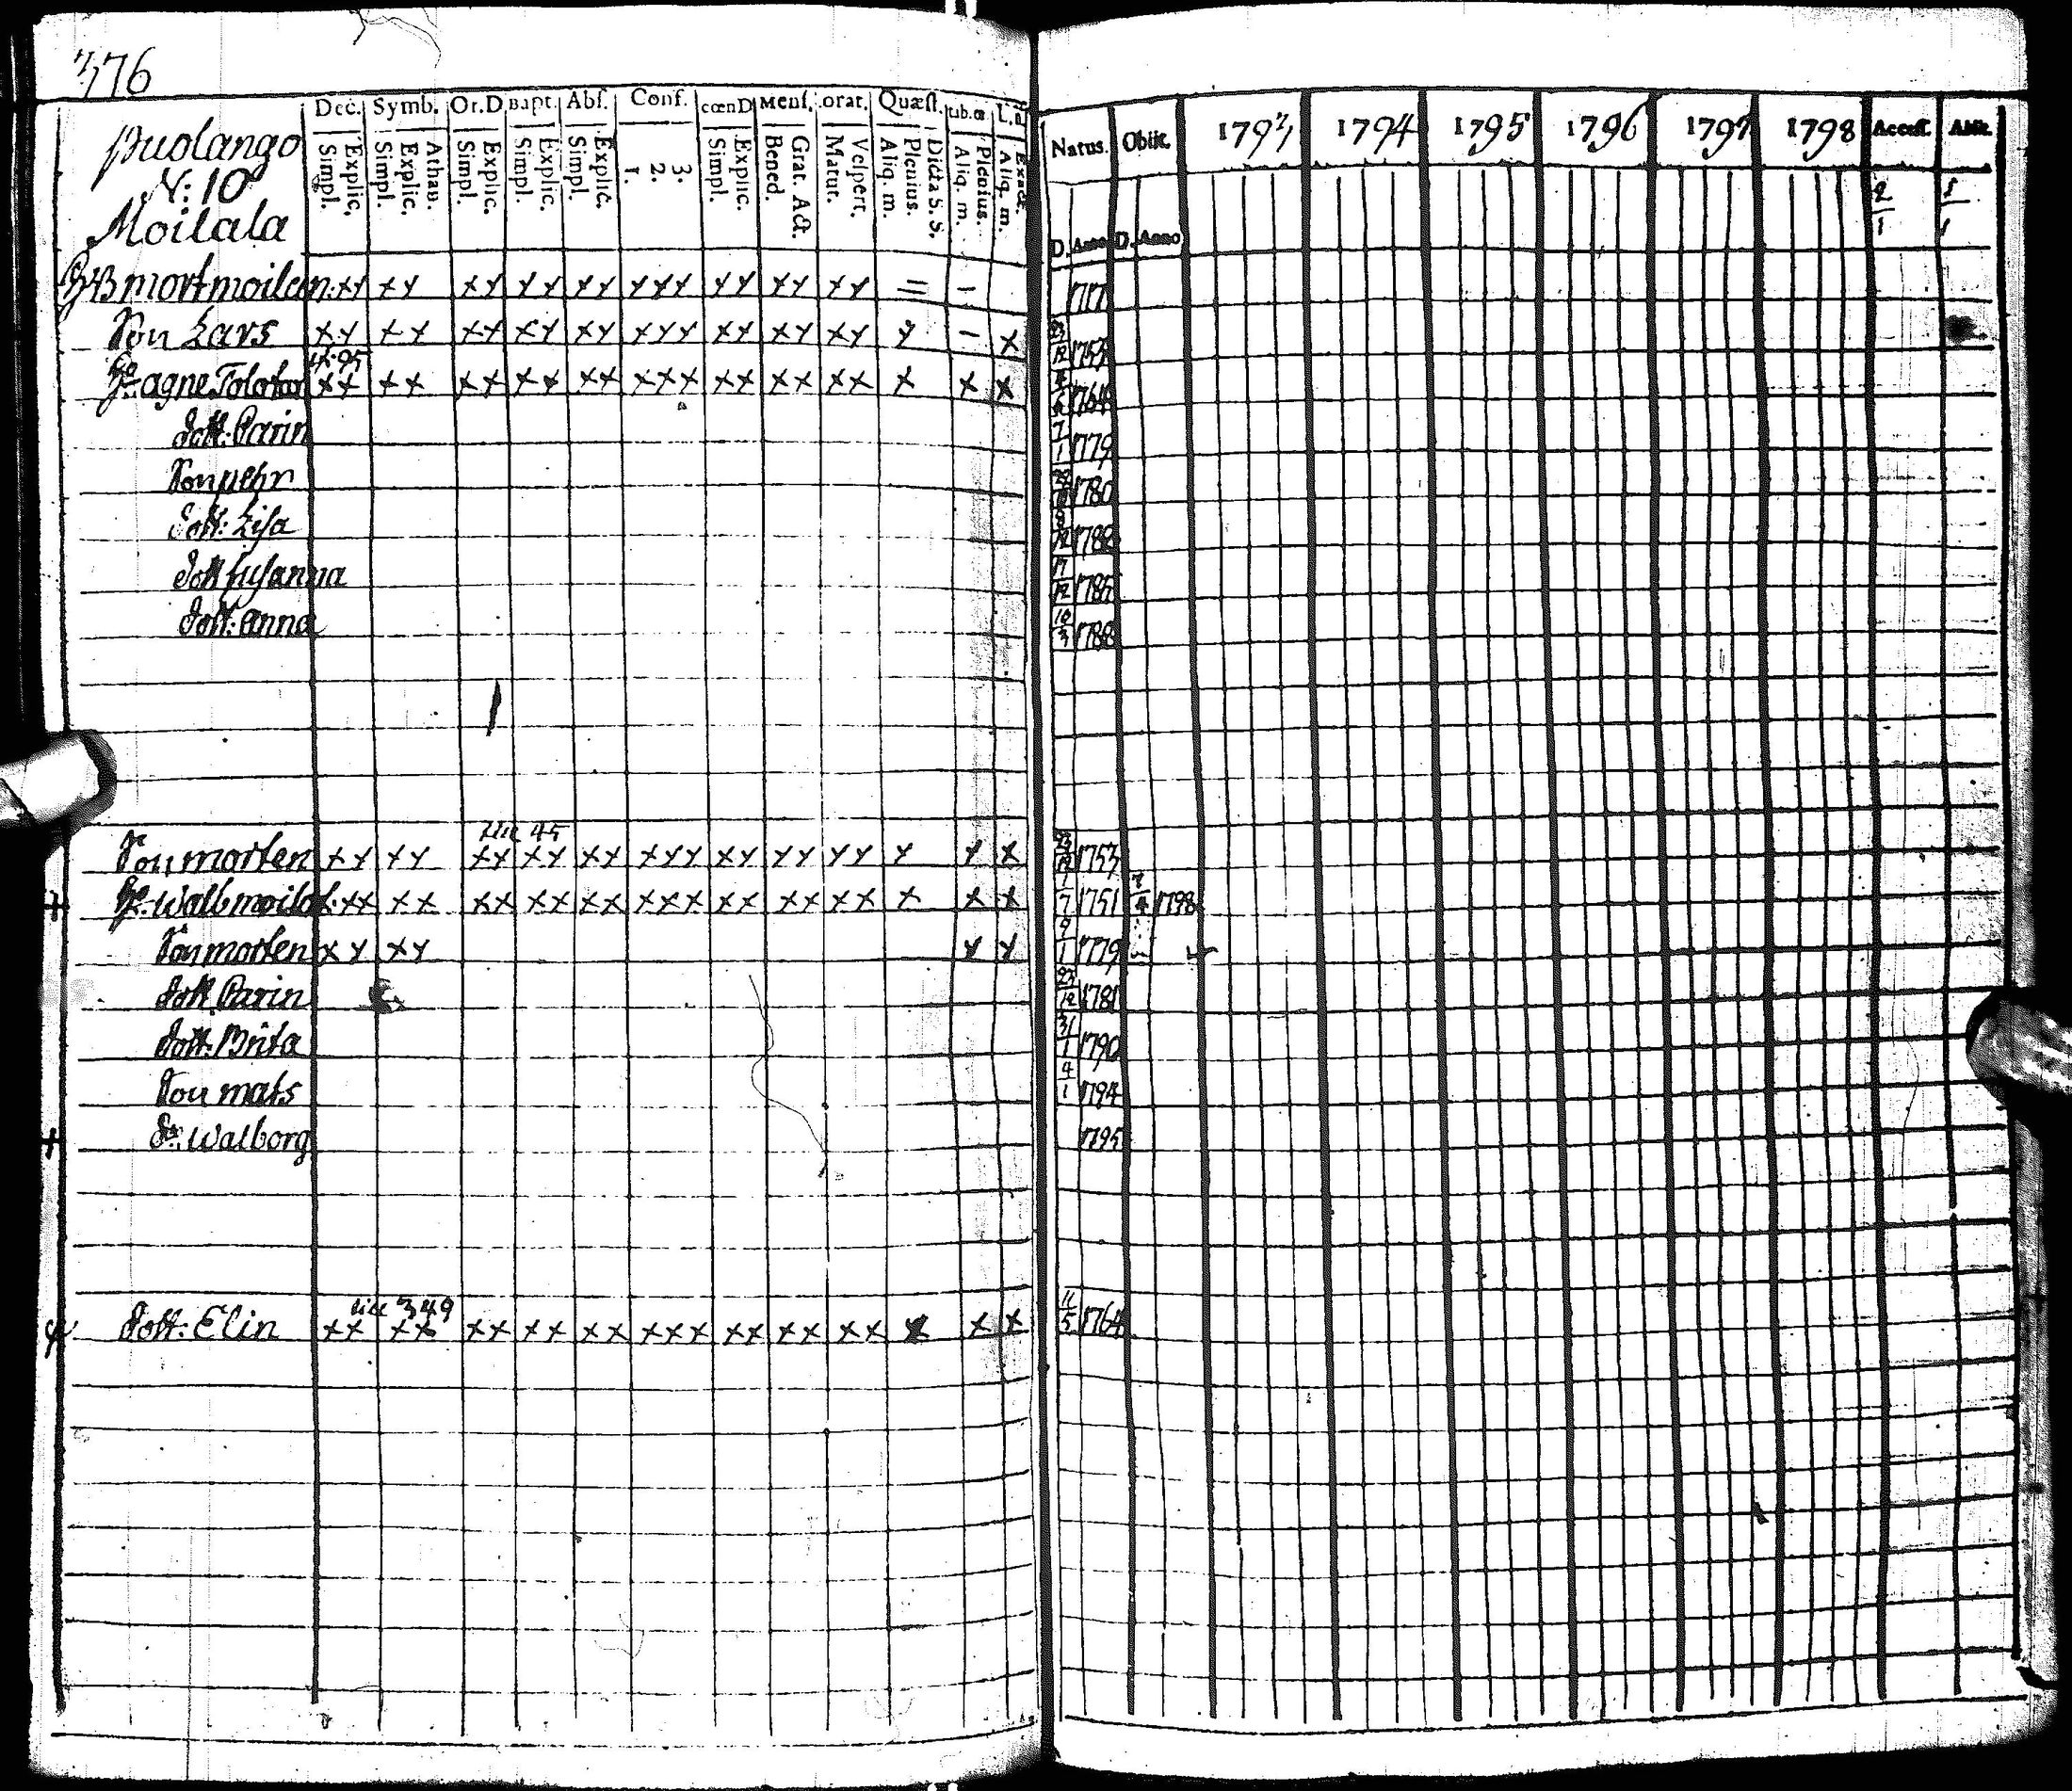 376
Dec. Symb. Or.D Bapt. Abs. Conf. cœnD Mens. orat. Quæst.
Simpl. Explic. Simpl. Explic. Athan. Simpl. Explic. Simpl. Explic. Simpl. Explic. 1. 2. 3. Simpl. Explic. Bened. Grat. Act. Matut. Vespert. Aliq. m. Plenius. Dicta S. S. Aliq. m. Plenius. Aliq. m.
Natus. Obiit. 1793 1794 1795 1796 1797 1798 Access. Abit.
D. Anno D. Anno
2/1 1/1
Puolango
N: 10
Moilala
mort moilan: xx xx xx xx xx xxx xx xx xx = - 1717
Son Lars xx xx xx xx xx xxx xx xx xx x - x 1753
agne xx xx xx xx xx xxx xx xx xx x x x 1764
dott: Carin 7/1 1779
Son pehr 1780
dott: Lisa
dott Susanna 17/12 1785
dott: anna 10/3 1788
45
Son morten xx xx xx xx xx xxx xx xx xx x x x 23/12 1753
Walb moilal: xx xx xx xx xx xxx xx xx xx x x x 1/7 1751 7/4 1798
Son morten xx xx x x 9/1 1779
dott Carin 23/12 1781
dott: Brita 31/1 1790
Son mats 4/1 1794
Walborg 1795
till 349
dott: Elin xx xx xx xx xx xxx xx xx xx x x x 11/5 1764